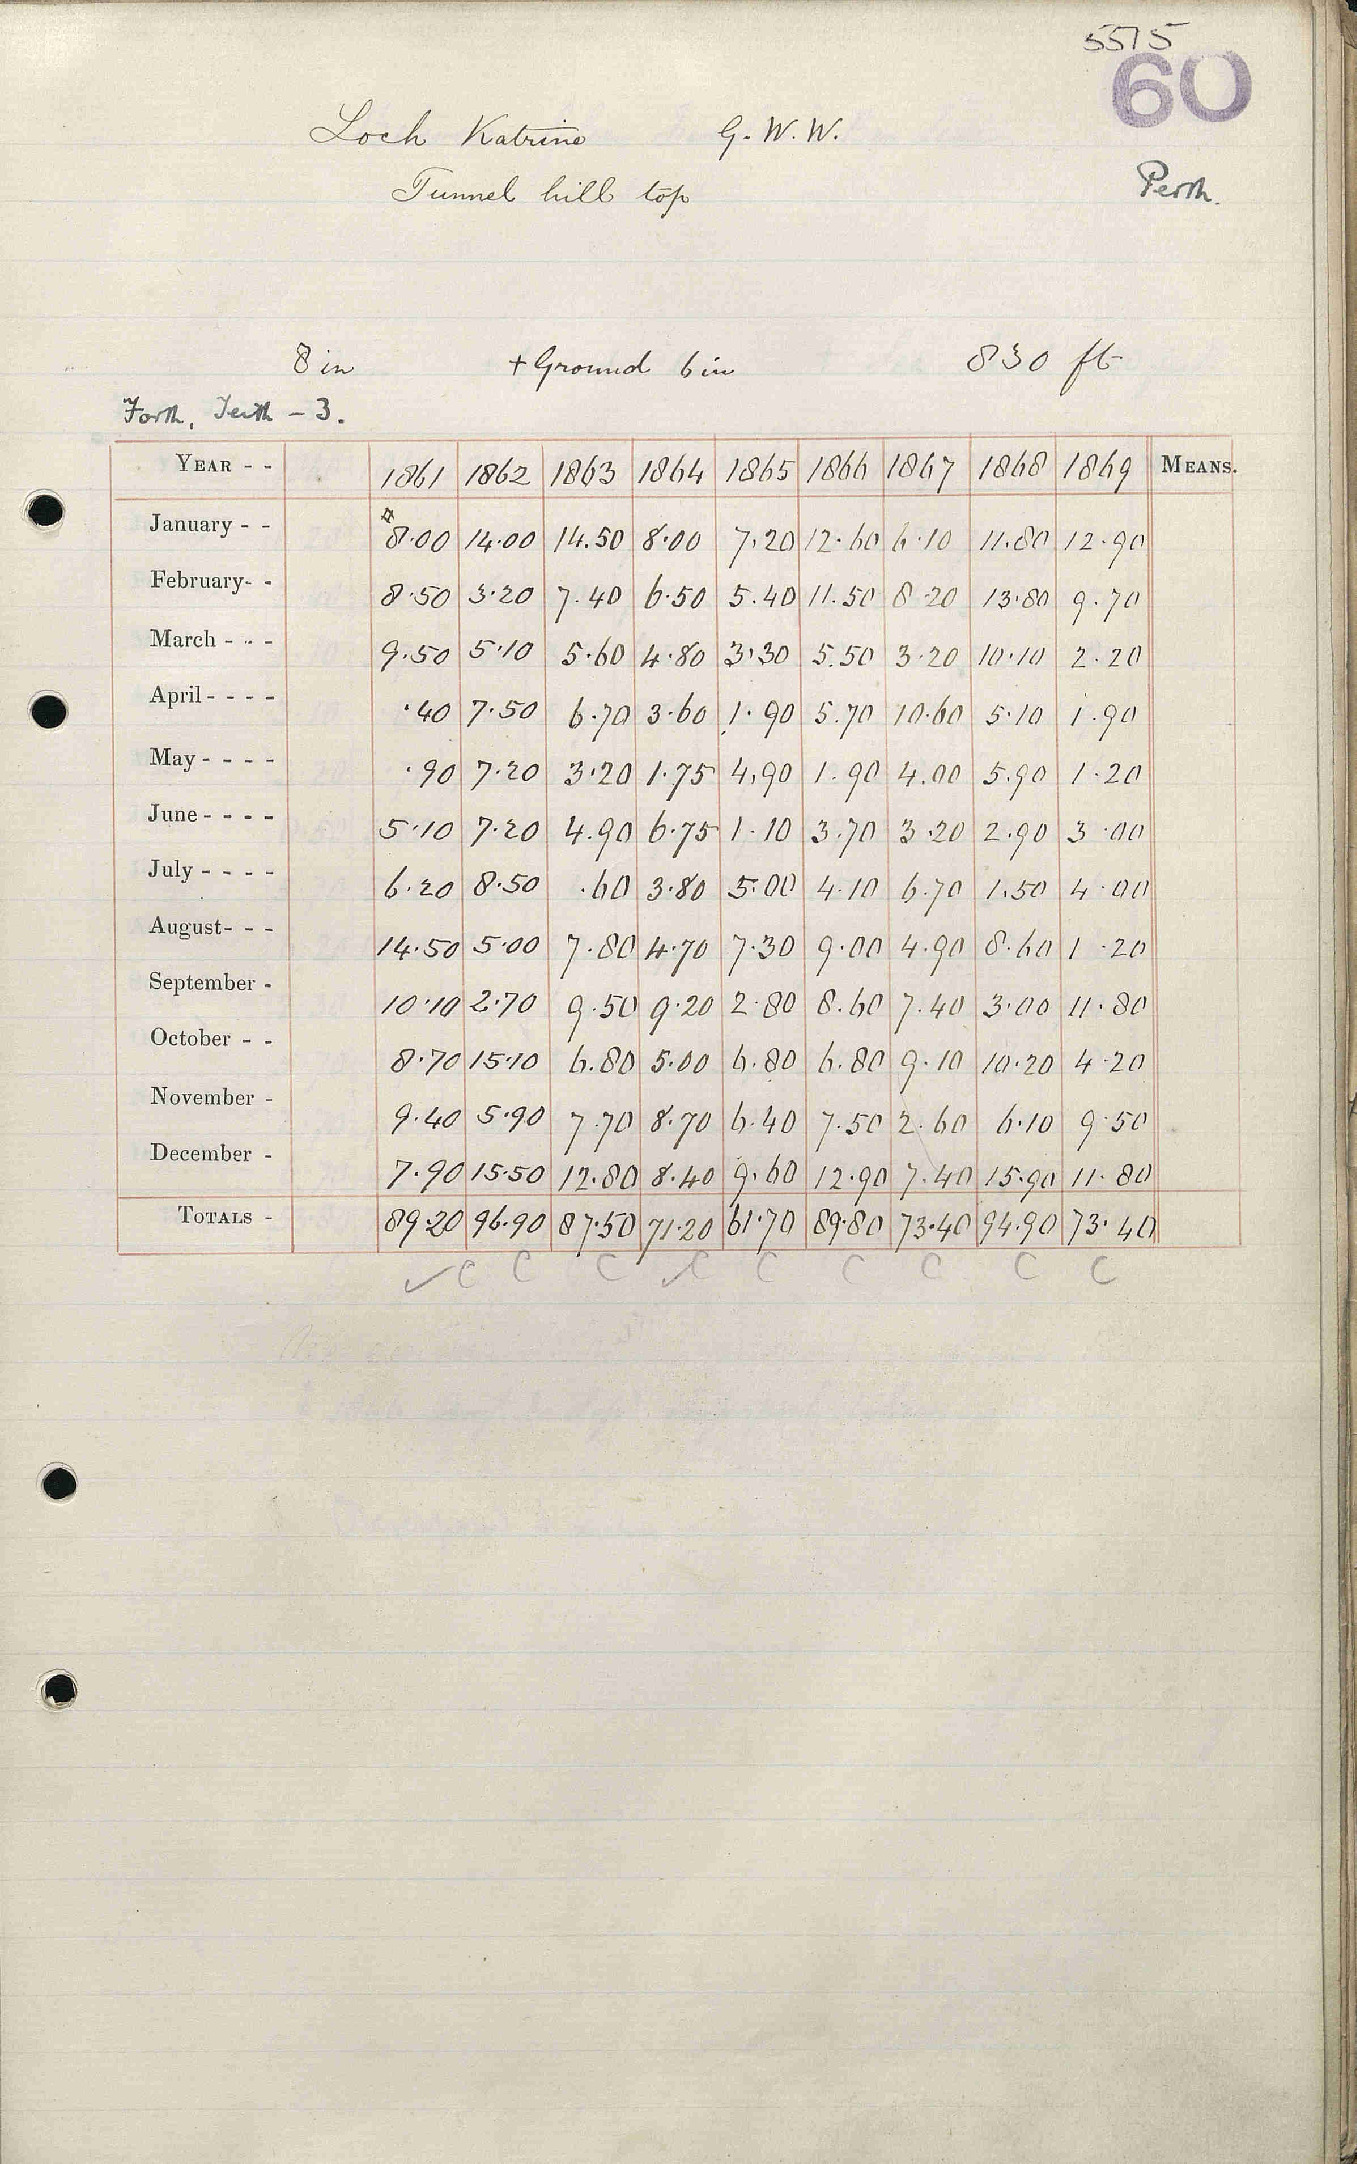 5575
60
Loch Katrine G. W. W.
Tunnel hill top
Perth.
8 in + Ground 6 in 830 ft
Forth, Teith - 3.
YEAR - - 1861 1862 1863 1864 1865 1866 1867 1868 1869 MEANS.
January - - 8.00 14.00 14.50 8.00 7.20 12.60 6.10 11.80 12.90
February- - 8.50 3.20 7.40 6.50 5.40 11.50 8.20 13.80 9.70
March - - - 9.50 5.10 5.60 4.80 3.30 5.50 3.20 10.10 2.20
April - - - - .40 7.50 6.70 3.60 1.90 5.70 10.60 5.10 1.90
May - - - - .90 7.20 3.20 1.75 4.90 1.90 4.00 5.90 1.20
June - - - - 5.10 7.20 4.90 6.75 1.10 3.70 3.20 2.90 3.00
July - - - - 6.20 8.50 .60 3.80 5.00 4.10 6.70 1.50 4.00
August- - - 14.50 5.00 7.80 4.70 7.30 9.00 4.90 8.60 1.20
September - 10.10 2.70 9.50 9.20 2.80 8.60 7.40 3.00 11.80
October - - 8.70 15.10 6.80 5.00 6.80 6.80 9.10 10.20 4.20
November - 9.40 5.90 7.70 8.70 6.40 7.50 2.60 6.10 9.50
December - 7.90 15.50 12.80 8.40 9.60 12.90 7.40 15.90 11.80
TOTALS - 89.20 96.90 87.50 71.20 61.70 89.80 73.40 94.90 73.40
✓ C C C ✓ C C C C C C